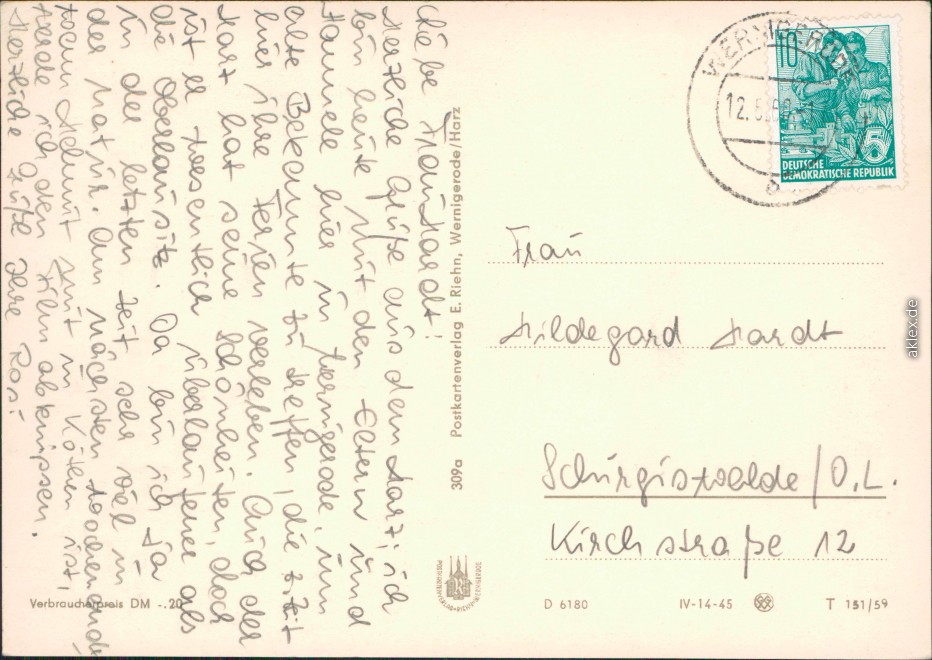 Liebe Frau Hardt!
Herzliche Grüße aus dem Harz; ich
bin heute mit den Eltern und
Hannele hier in Wernigerode, um
alte Bekannte zu treffen, die z. Zt
hier ihre Ferien verleben. Auch der
Harz hat seine Schönheiten, doch
ist er wesentlich überlaufener als
die Oberlausitz. Da bin ich ja
in der letzten Zeit sehr viel in
der Natur. Am nächsten Wochenende,
wenn Helmut mit in Köthen ist,
werde ich den Film abknipsen.
Herzliche Grüße Ihre Rosi
309a Postkartenverlag E. Riehn, Wernigerode/Harz
Verbraucherpreis DM -.20
WERNIGERODE
12.
10
5
DEUTSCHE
DEMOKRATISCHE REPUBLIK
Frau
Hildegard Hardt
Schirgiswalde/O.L.
Kirchstraße 12
D 6180 IV-14-45 T 151/59
aklex.de